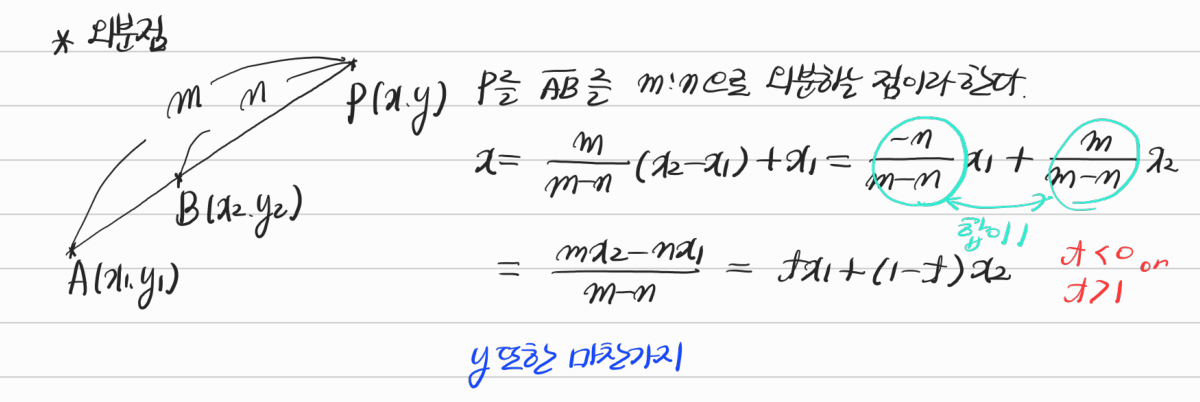 * 외분점
m n
P(x.y)
B(x₂.y₂)
A(x₁.y₁)
P를 AB를 m:n으로 외분하는 점이라 한다.
x = m/(m-n) (x₂-x₁) + x₁ = -n/(m-n) x₁ + m/(m-n) x₂
합이 1
= (mx₂-nx₁)/(m-n) = tx₁ + (1-t)x₂
t<0 or
t>1
y 또한 마찬가지